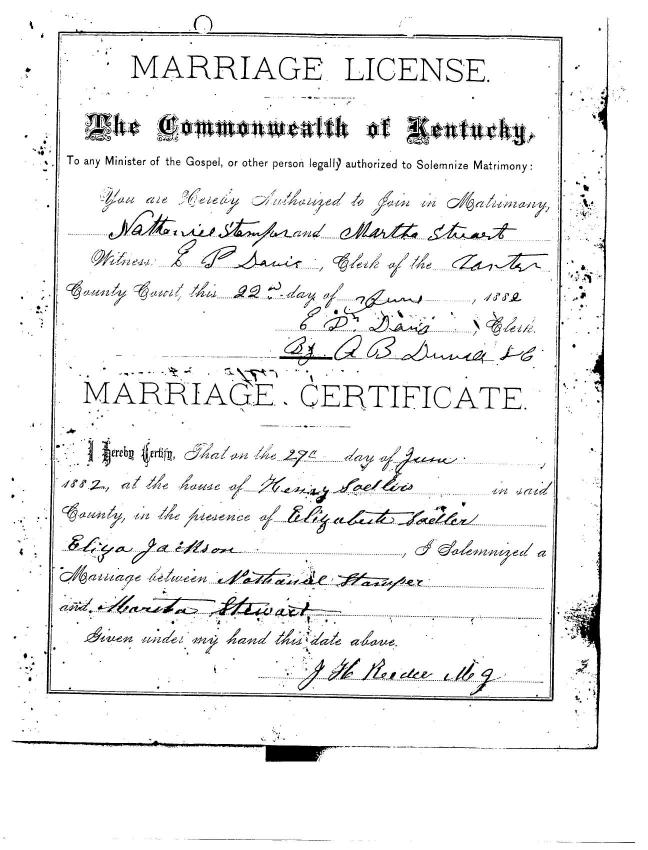 MARRIAGE LICENSE.
The Commonwealth of Kentucky,
To any Minister of the Gospel, or other person legally authorized to Solemnize Matrimony:
You are Hereby Authorized to Join in Matrimony,
Nathaniel Stamper and Martha Stuart
Witness E P Davis, Clerk of the Carter
County Court, this 22nd day of June, 1882
E P Davis, Clerk.
By A B D C
MARRIAGE CERTIFICATE.
I Hereby Certify, That on the 29 day of June,
1882, at the house of Henry in said
County, in the presence of Elizabeth
Eliza Jackson, I Solemnized a
Marriage between Nathaniel Stamper
and Martha Stewart
Given under my hand this date above.
J H Reeder M G